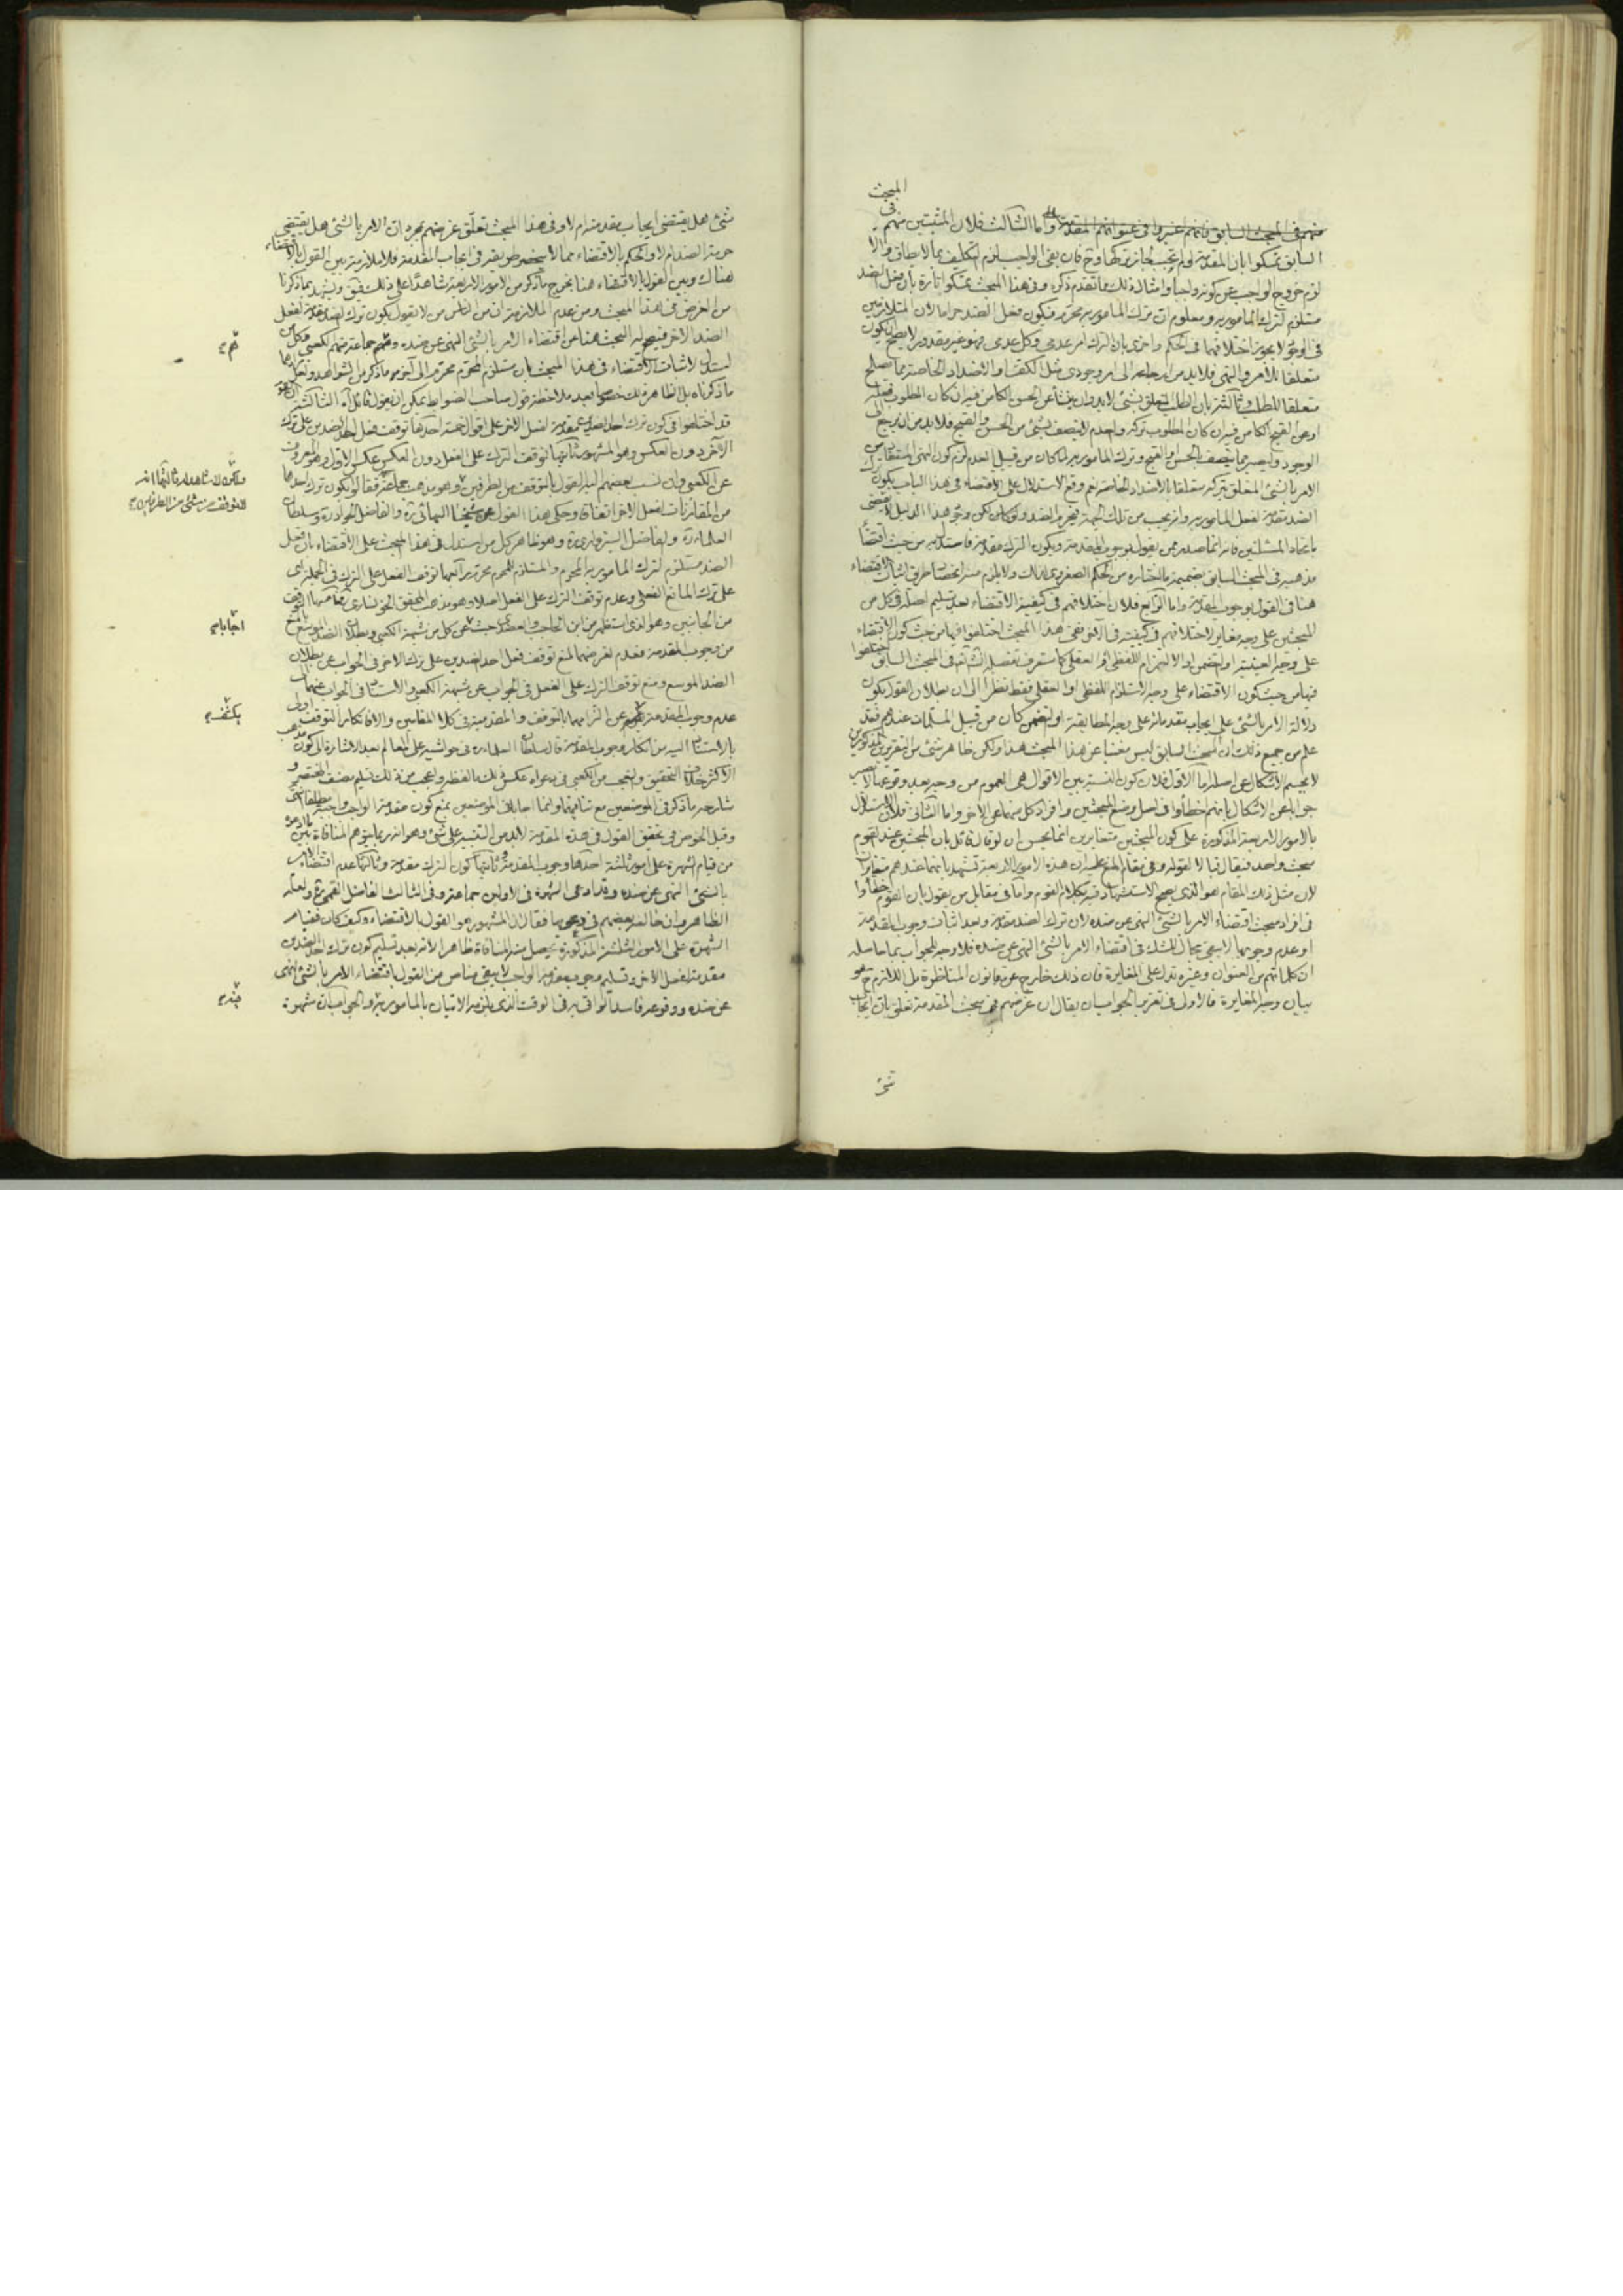 المبحث
في
منهم في المبحث السابق واما الثالث فلان المثبتين منهم
السابق تمسكوا بان المقدمة لو لم تجب لجاز تركها وح فان بقى الواجب لزم التكليف بما لا يطاق والا
لزم خروج الواجب عن كونه واجبا وامثال ذلك مما تقدم ذكره وفي هذا المبحث تمسكوا تارة بان فعل الضد
مستلزم لترك المامور به ومعلوم ان ترك المامور به محرم فيكون فعل الضد حراما لان المتلازمين
في الوجود لا يجوز اختلافهما في الحكم واخرى بان الترك امر عدمي وكل عدمي فهو غير مقدور لا يصح ان يكون
متعلقا للامر والنهي فلابد من ارجاعه الى امر وجودي مثل الكف او الاضداد الخاصة مما يصلح
متعلقا للطلب وثالثة بان الطلب المتعلق بشئ لابد وان ينشأ عن الحسن الكامن فيه ان كان المطلوب فعله
او عن القبح الكامن فيه ان كان المطلوب تركه والعدم لا يتصف بشئ من الحسن والقبح فلابد من ان يرجع
الوجود وليصير مما يتصف بالحسن او القبح وترك المامور به لما كان من قبيل العدم لزم كون النهي المستفاد من
الامر بالشئ المتعلق بتركه متعلقا بالاضداد الخاصة نعم وقع الاستدلال على الاقتضاء في هذا الباب بكون ترك
الضد مقدمة لفعل المامور به وانه يجب من تلك الجهة فيحرم الضد ولكن هذا الدليل لا يقتضي
باتحاد المسئلتين فانه انما صدر ممن يقول بوجوب المقدمة وبكون الترك مقدمة فاستدل به من حيث اقتضاء
مذهبه في المبحث السابق بضميمة ما اختاره من الحكم الصغروي لذلك ولا يلزم منه انحصار طريق اثبات الاقتضاء
هنا في القول بوجوب المقدمة واما الرابع فلان اختلافهم في كيفية الاقتضاء بعد تسليم اصله في كل من
المبحثين على وجه مغاير لاختلافهم في كيفيته في الآخر ففي هذا المبحث اختلفوا فيها من حيث كون الاقتضاء
على وجه العينية او التضمن او الالتزام اللفظي او العقلي كما ستعرف تفصيله ان شاء الله في المبحث السابق اختلفوا
فيها من حيث كون الاقتضاء على وجه الاستلزام اللفظي او العقلي فقط نظرا الى ان بطلان القول بكون
دلالة الامر بالشئ على ايجاب مقدماته على وجه المطابقة او التضمن كان من قبيل المسلمات عندهم فقد
علم من جميع ذلك ان المبحث السابق ليس مغنيا عن هذا المبحث هذا ولكن ظاهر شئ من التقريرين المذكورين
لا يحسم الاشكال عن اصله اما الاول فلان كون النسبة بين الاقوال هي العموم من وجه بعد وقوعها لا يصير
جوابا عن الاشكال بانهم اخطأوا في اصل وضع المبحثين وافراد كل منهما عن الآخر واما الثاني فلان الاستدلال
بالامور الاربعة المذكورة على كون المبحثين متغايرين انما يحسن ان لو قال قائل بان المبحثين عند القوم
مبحث واحد فيقال قبالا لقوله وفي مقام المنع عليه ان هذه الامور الاربعة تشهد بانهما عندهم متغايران
لان مثل ذلك المقام هو الذي يصح الاستشهاد فيه بكلام القوم واما في مقابل من يقول بان القوم اخطأوا
في افراد مبحث اقتضاء الامر بالشئ النهي عن ضده لان ترك الضد مقدمة وبعد اثبات وجوب المقدمة
او عدم وجوبها لا يبقى مجال للشك في اقتضاء الامر بالشئ النهي عن ضده فلا وجه للجواب بما حاصله
ان كلماتهم من العنوان وغيره تدل على المغايرة فان ذلك خارج عن قانون المناظرة بل اللازم ح هو
بيان وجه المغايرة فالاولى في تقرير الجواب ان يقال ان غرضهم في مبحث المقدمة تعلق بان ايجاب
شئ
شئ هل يقتضي ايجاب مقدمته ام لا وفي هذا المبحث تعلق غرضهم بمجرد ان الامر بالشئ هل يقتضي
حرمة الضد ام لا والحكم بالاقتضاء مما لا ينحصر طريقه في ايجاب المقدمة فلا ملازمة بين القول بالاقتضاء
هناك وبين القول بالاقتضاء هنا بخروج ما ذكر من الامور الاربعة شاهدا على ذلك
من الغرض في هذا المبحث ومن عدم الملازمة ان من الناس من لا يقول بكون ترك الضد مقدمة لفعل
الضد الآخر فيصح له البحث هنا عن اقتضاء الامر بالشئ النهي عن ضده ومنهم جماعة منهم الكعبي وكل من
استدل لاثبات الاقتضاء في هذا المبحث بان مستلزم المحرم محرم الى آخر ما ذكر من الشواهد ولعل
ما ذكرناه بل الظاهر ذلك خصوصا بعد ملاحظة قول صاحب الضوابط يمكن ان يقول قائل آه الثالثة
قد اختلفوا في كون ترك احد الضدين مقدمة لفعل الآخر على اقوال خمسة احدها توقف فعل احد الضدين على ترك
الآخر دون العكس وهو المشهور ثانيها توقف الترك على الفعل دون العكس عكس الاول وهو المعروف
عن الكعبي وان نسب بعضهم اليه القول بالتوقف من الطرفين وهو مذهب جماعة فقالوا بكون ترك احدهما
من المقارنات لفعل الآخر اتفاقا وحكي هذا القول عن شيخنا البهائي ره والفاضل الجواد ره وسلطان
العلماء ره والفاضل السبزواري ره وهو ظاهر كل من استدل في هذا المبحث على الاقتضاء بان فعل
الضد مستلزم لترك المامور به المحرم والمستلزم للمحرم محرم رابعها توقف الفعل على الترك في الجملة اي
على ترك المانع الفعلي وعدم توقف الترك على الفعل اصلا وهو مذهب المحقق الخونساري ره خامسها التوقف
من الجانبين وهو الذي استظهر من ابن الحاجب والعضدي حيث عن كل من شبهة الكعبي وبطلان الضد الموسع بالمنع
من وجوب المقدمة فعدم تعرضهما لمنع توقف فعل احد الضدين على ترك الآخر في الجواب عن بطلان
الضد الموسع ومنع توقف الترك على الفعل في الجواب عن شبهة الكعبي والاستناد في الجواب عنهما الى
عدم وجوب المقدمة عن التزامهما بالتوقف والمقدمية في كلا المقامين والا فانكار التوقف اولى
بالاستناد اليه من انكار وجوب المقدمة قال سلطان العلماء ره في حواشيه على المعالم بعد الاشارة الى كون مذهب
الاكثر خلاف التحقيق والتعجب من الكعبي في دعواه عكس ذلك ما لفظه والعجب من ذلك تسليم مصنف المختصر و
شارحه ما ذكر في الموضعين مع تنافيهما وانما اجابا في الموضعين بمنع كون مقدمة الواجب واجبة مطلقا انتهى
وقبل الخوض في تحقيق القول في هذه المقدمة لابد من التنبيه على شئ وهو انه ربما يتوهم المنافاة بين ما ادعوه
من قيام الشهرة على امور ثلثة احدها وجوب المقدمة وثانيها كون الترك مقدمة وثالثها عدم اقتضاء الامر
بالشئ النهي عن ضده وقد ادعى الشهرة في الاولين جماعة وفي الثالث الفاضل القمي ره ولعله
الظاهر وان خالفه بعضهم في دعواه فقال ان المشهور هو القول بالاقتضاء وكيف كان فقيام
الشهرة على الامور الثلثة المذكورة يحصل منه المنافاة ظاهرا لانه بعد تسليم كون ترك احد الضدين
مقدمة لفعل الآخر وتسليم وجوب مقدمة الواجب لا يبقى مناص من القول باقتضاء الامر بالشئ النهي
عن ضده ووقوعه فاسدا لو اتى به في الوقت الذي يلزمه الاتيان بالمامور به والجواب ان شهرة